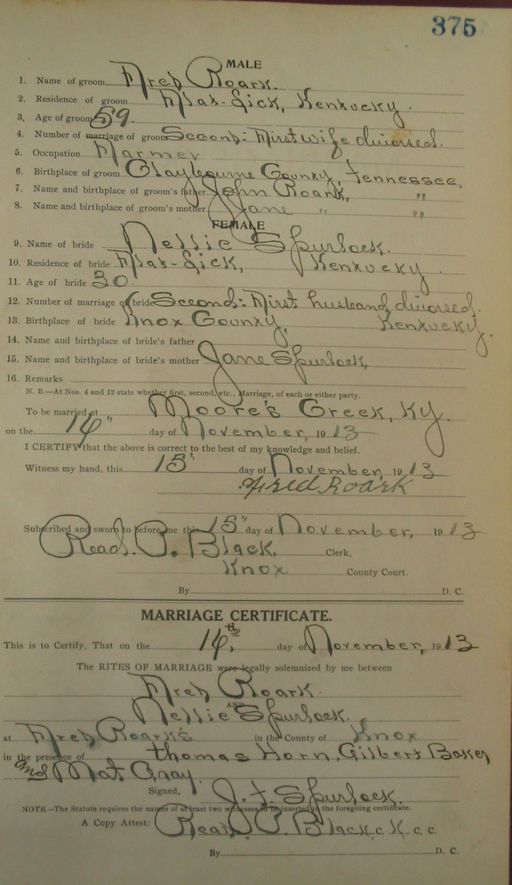 375
MALE
1. Name of groom Fred Roark.
2. Residence of groom Flat-Lick, Kentucky.
3. Age of groom 59.
4. Number of marriage of groom Second: First wife divorsed.
5. Occupation Farmer
6. Birthplace of groom Claybourne County, Tennessee,
7. Name and birthplace of groom's father John Roark, "
8. Name and birthplace of groom's mother Jane " "
FEMALE
9. Name of bride Nellie Spurlock.
10. Residence of bride Flat-Lick, Kentucky.
11. Age of bride 30.
12. Number of marriage of bride Second: First husband divorsed.
13. Birthplace of bride Knox County, Kentucky.
14. Name and birthplace of bride's father
15. Name and birthplace of bride's mother Jane Spurlock,
16. Remarks
N. B.—At Nos. 4 and 12 state whether first, second, etc., Marriage, of each or either party.
To be married at Moore's Creek, Ky.
on the 16" day of November, 1913
I CERTIFY that the above is correct to the best of my knowledge and belief.
Witness my hand, this 15" day of November, 1913
Fred Roark
Subscribed and sworn to before me this 15" day of November, 1913
Read. P. Black, Clerk,
Knox County Court.
By D. C.
MARRIAGE CERTIFICATE.
This is to Certify, That on the 16th, day of November, 1913
The RITES OF MARRIAGE were legally solemnized by me between
Fred Roark.
AND
Nellie Spurlock.
at Fred Roark's in the County of Knox
in the presence of Thomas Horn, Gilbert Baker
and Mat Gray.
Signed, J. F. Spurlock,
NOTE—The Statute requires the names of at least two witnesses to be inserted in the foregoing certificate.
A Copy Attest: Read. P. Black, C. K. C. C.
By D. C.